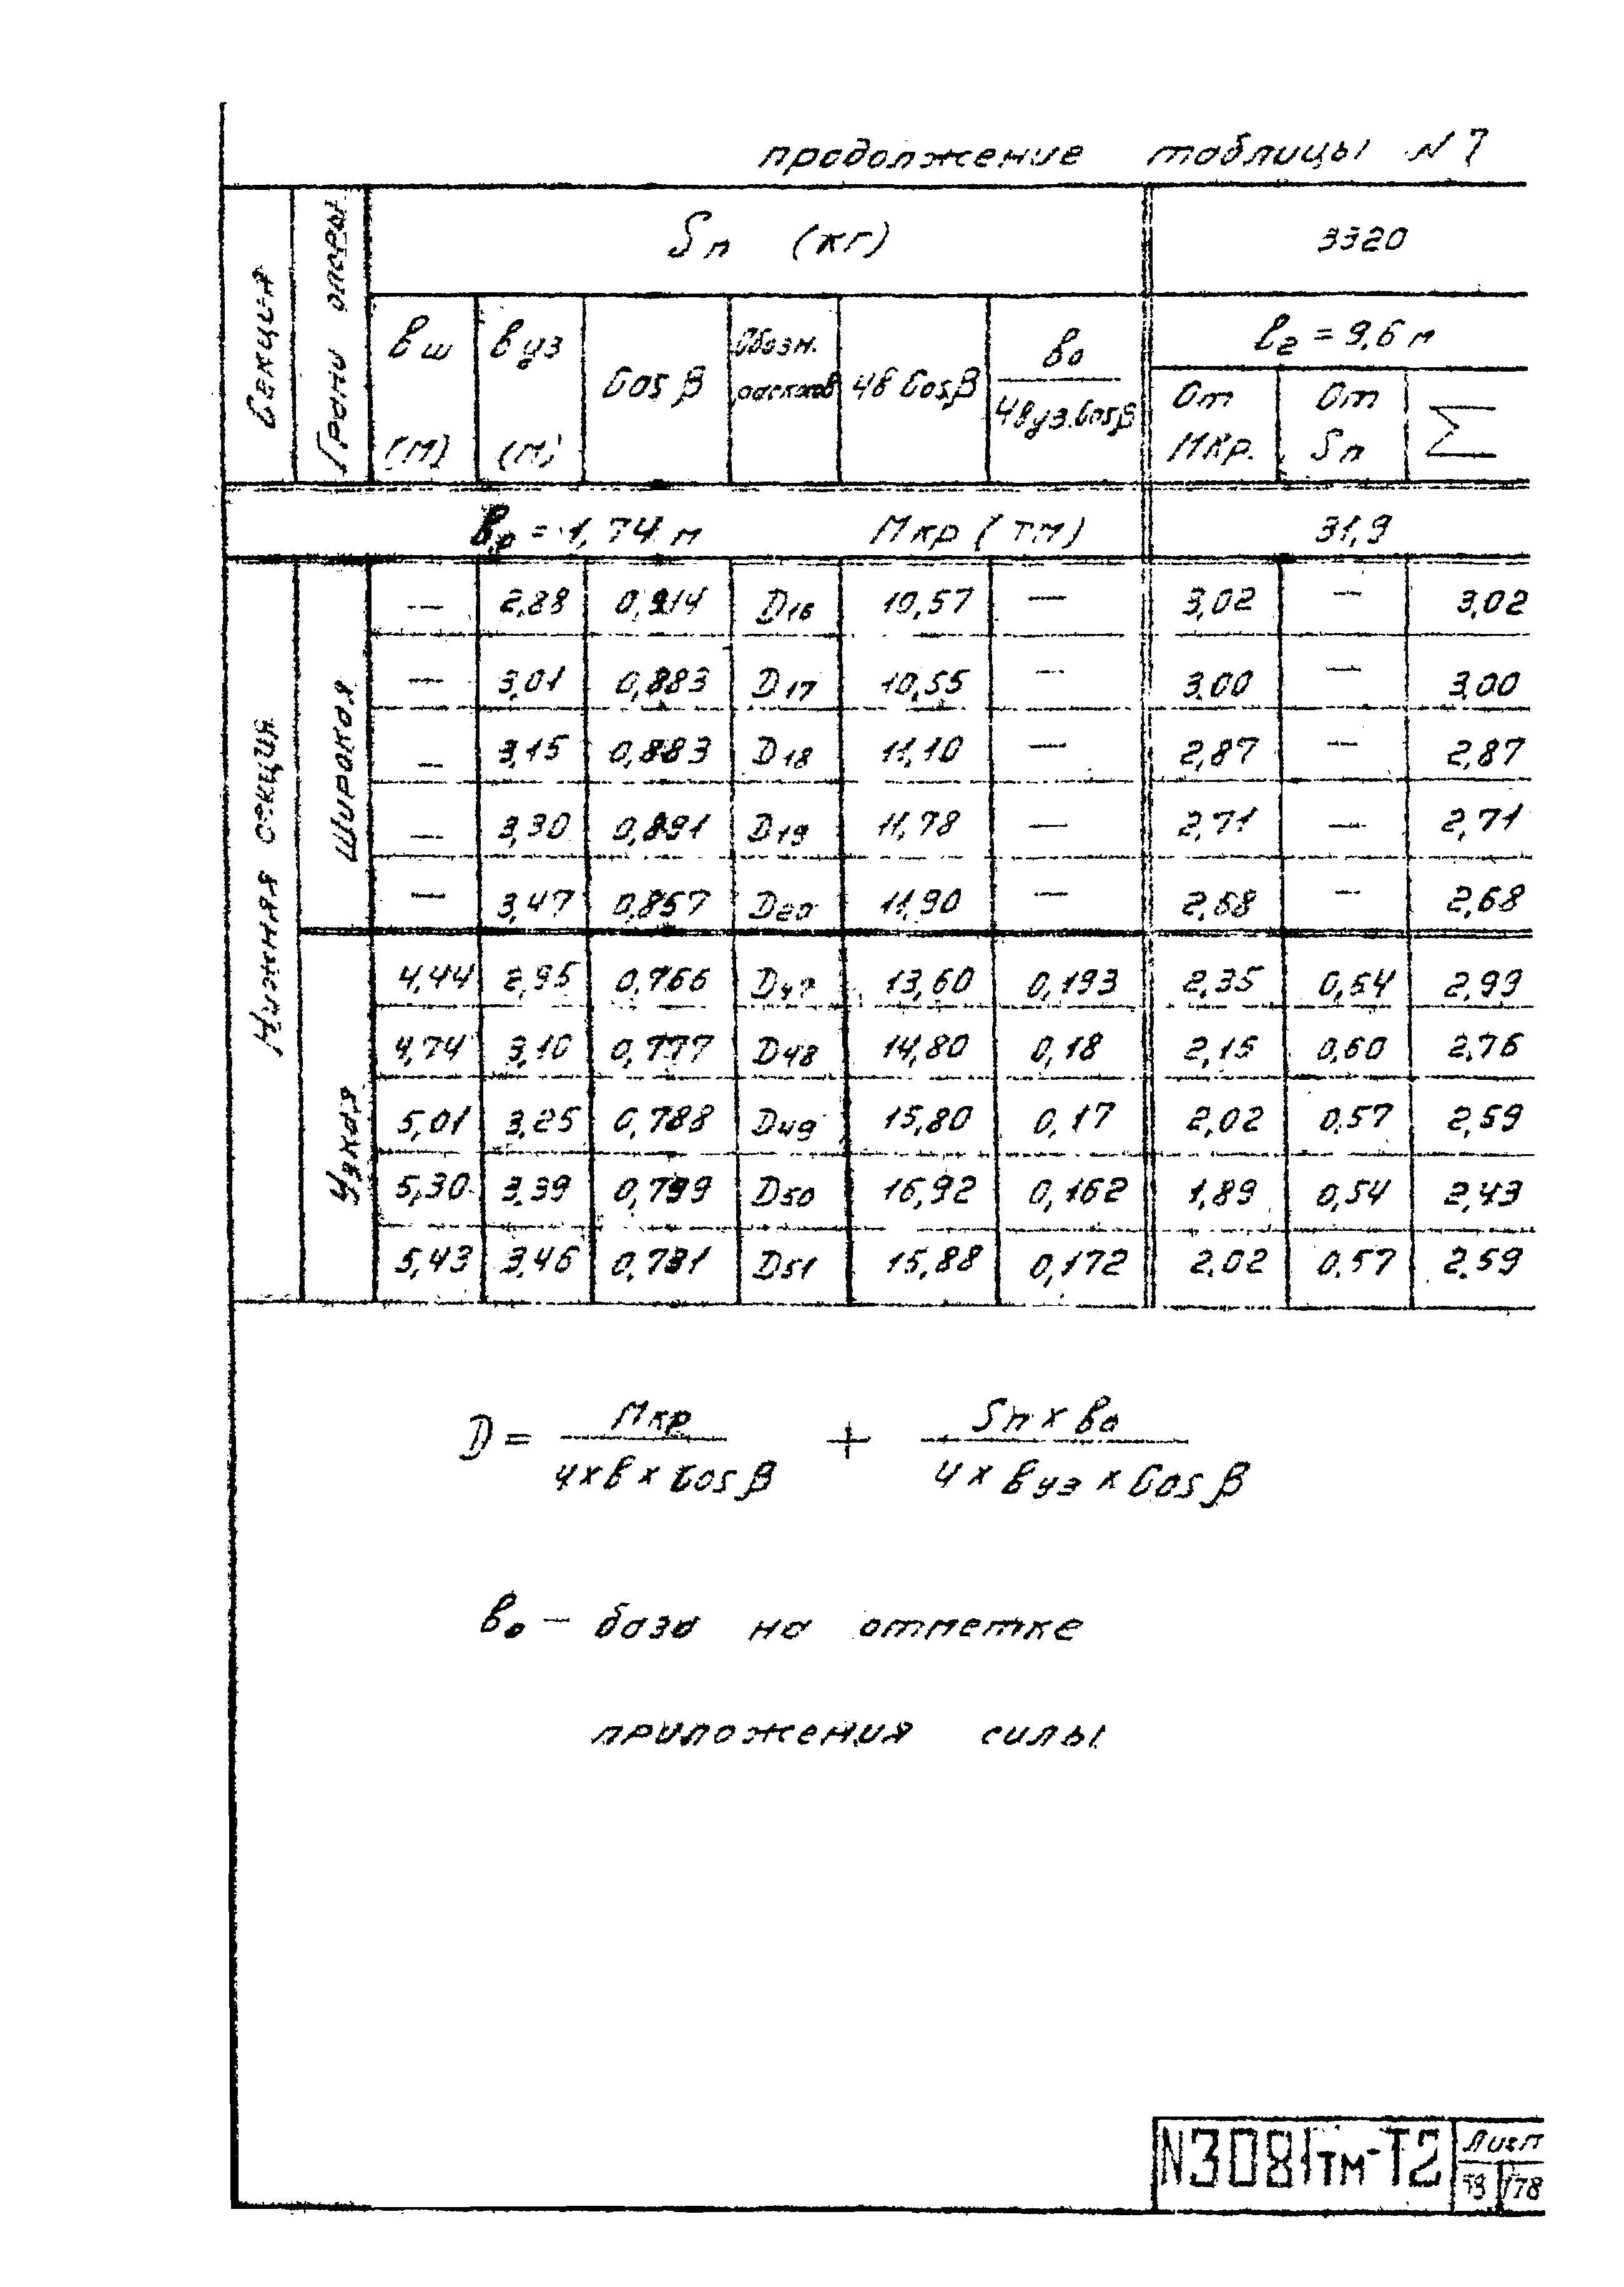 продолжение таблицы N 7
Секция | Грани опоры | Sп (кг) | 3320
вш (м) | вуз (м) | Cosβ | Обозн. раскосов | 4в Cosβ | в₀ / 4вуз.Cosβ | ℓ₂ = 9,6 м
От Мкр. | От Sп | Σ
вр = 1,74 м | Мкр (тм) | 31,9
Нижняя секция
Широкая
— | 2,88 | 0,914 | D16 | 10,57 | — | 3,02 | — | 3,02
— | 3,01 | 0,883 | D17 | 10,55 | — | 3,00 | — | 3,00
— | 3,15 | 0,883 | D18 | 11,10 | — | 2,87 | — | 2,87
— | 3,30 | 0,891 | D19 | 11,78 | — | 2,71 | — | 2,71
— | 3,47 | 0,857 | D20 | 11,90 | — | 2,68 | — | 2,68
Узкая
4,44 | 2,95 | 0,766 | D47 | 13,60 | 0,193 | 2,35 | 0,64 | 2,99
4,74 | 3,10 | 0,777 | D48 | 14,80 | 0,18 | 2,15 | 0,60 | 2,76
5,01 | 3,25 | 0,788 | D49 | 15,80 | 0,17 | 2,02 | 0,57 | 2,59
5,30 | 3,39 | 0,799 | D50 | 16,92 | 0,162 | 1,89 | 0,54 | 2,43
5,43 | 3,46 | 0,731 | D51 | 15,88 | 0,172 | 2,02 | 0,57 | 2,59
D = Мкр / 4×в×Cosβ + Sп×в₀ / 4×вуз×Cosβ
в₀ – база на отметке
приложения силы
N3081тм-Т2
Лист
/78